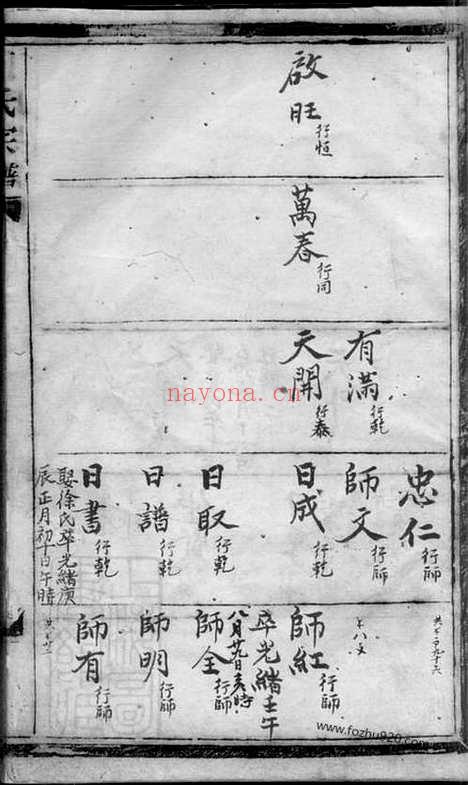 氏宗譜
啟旺 行恒
萬春 行同
有滿 行乾
天開 行泰
忠仁 行師
師文 行師
日成 行乾
日取 行乾
日譜 行乾
日書 行乾
娶徐氏卒光緒庚
辰正月初十日午時
師紅 行師
卒光緒壬午
八月廿九日亥時
師全 行師
師明 行師
師有 行師
nayona.cn
www.fozhu920.com